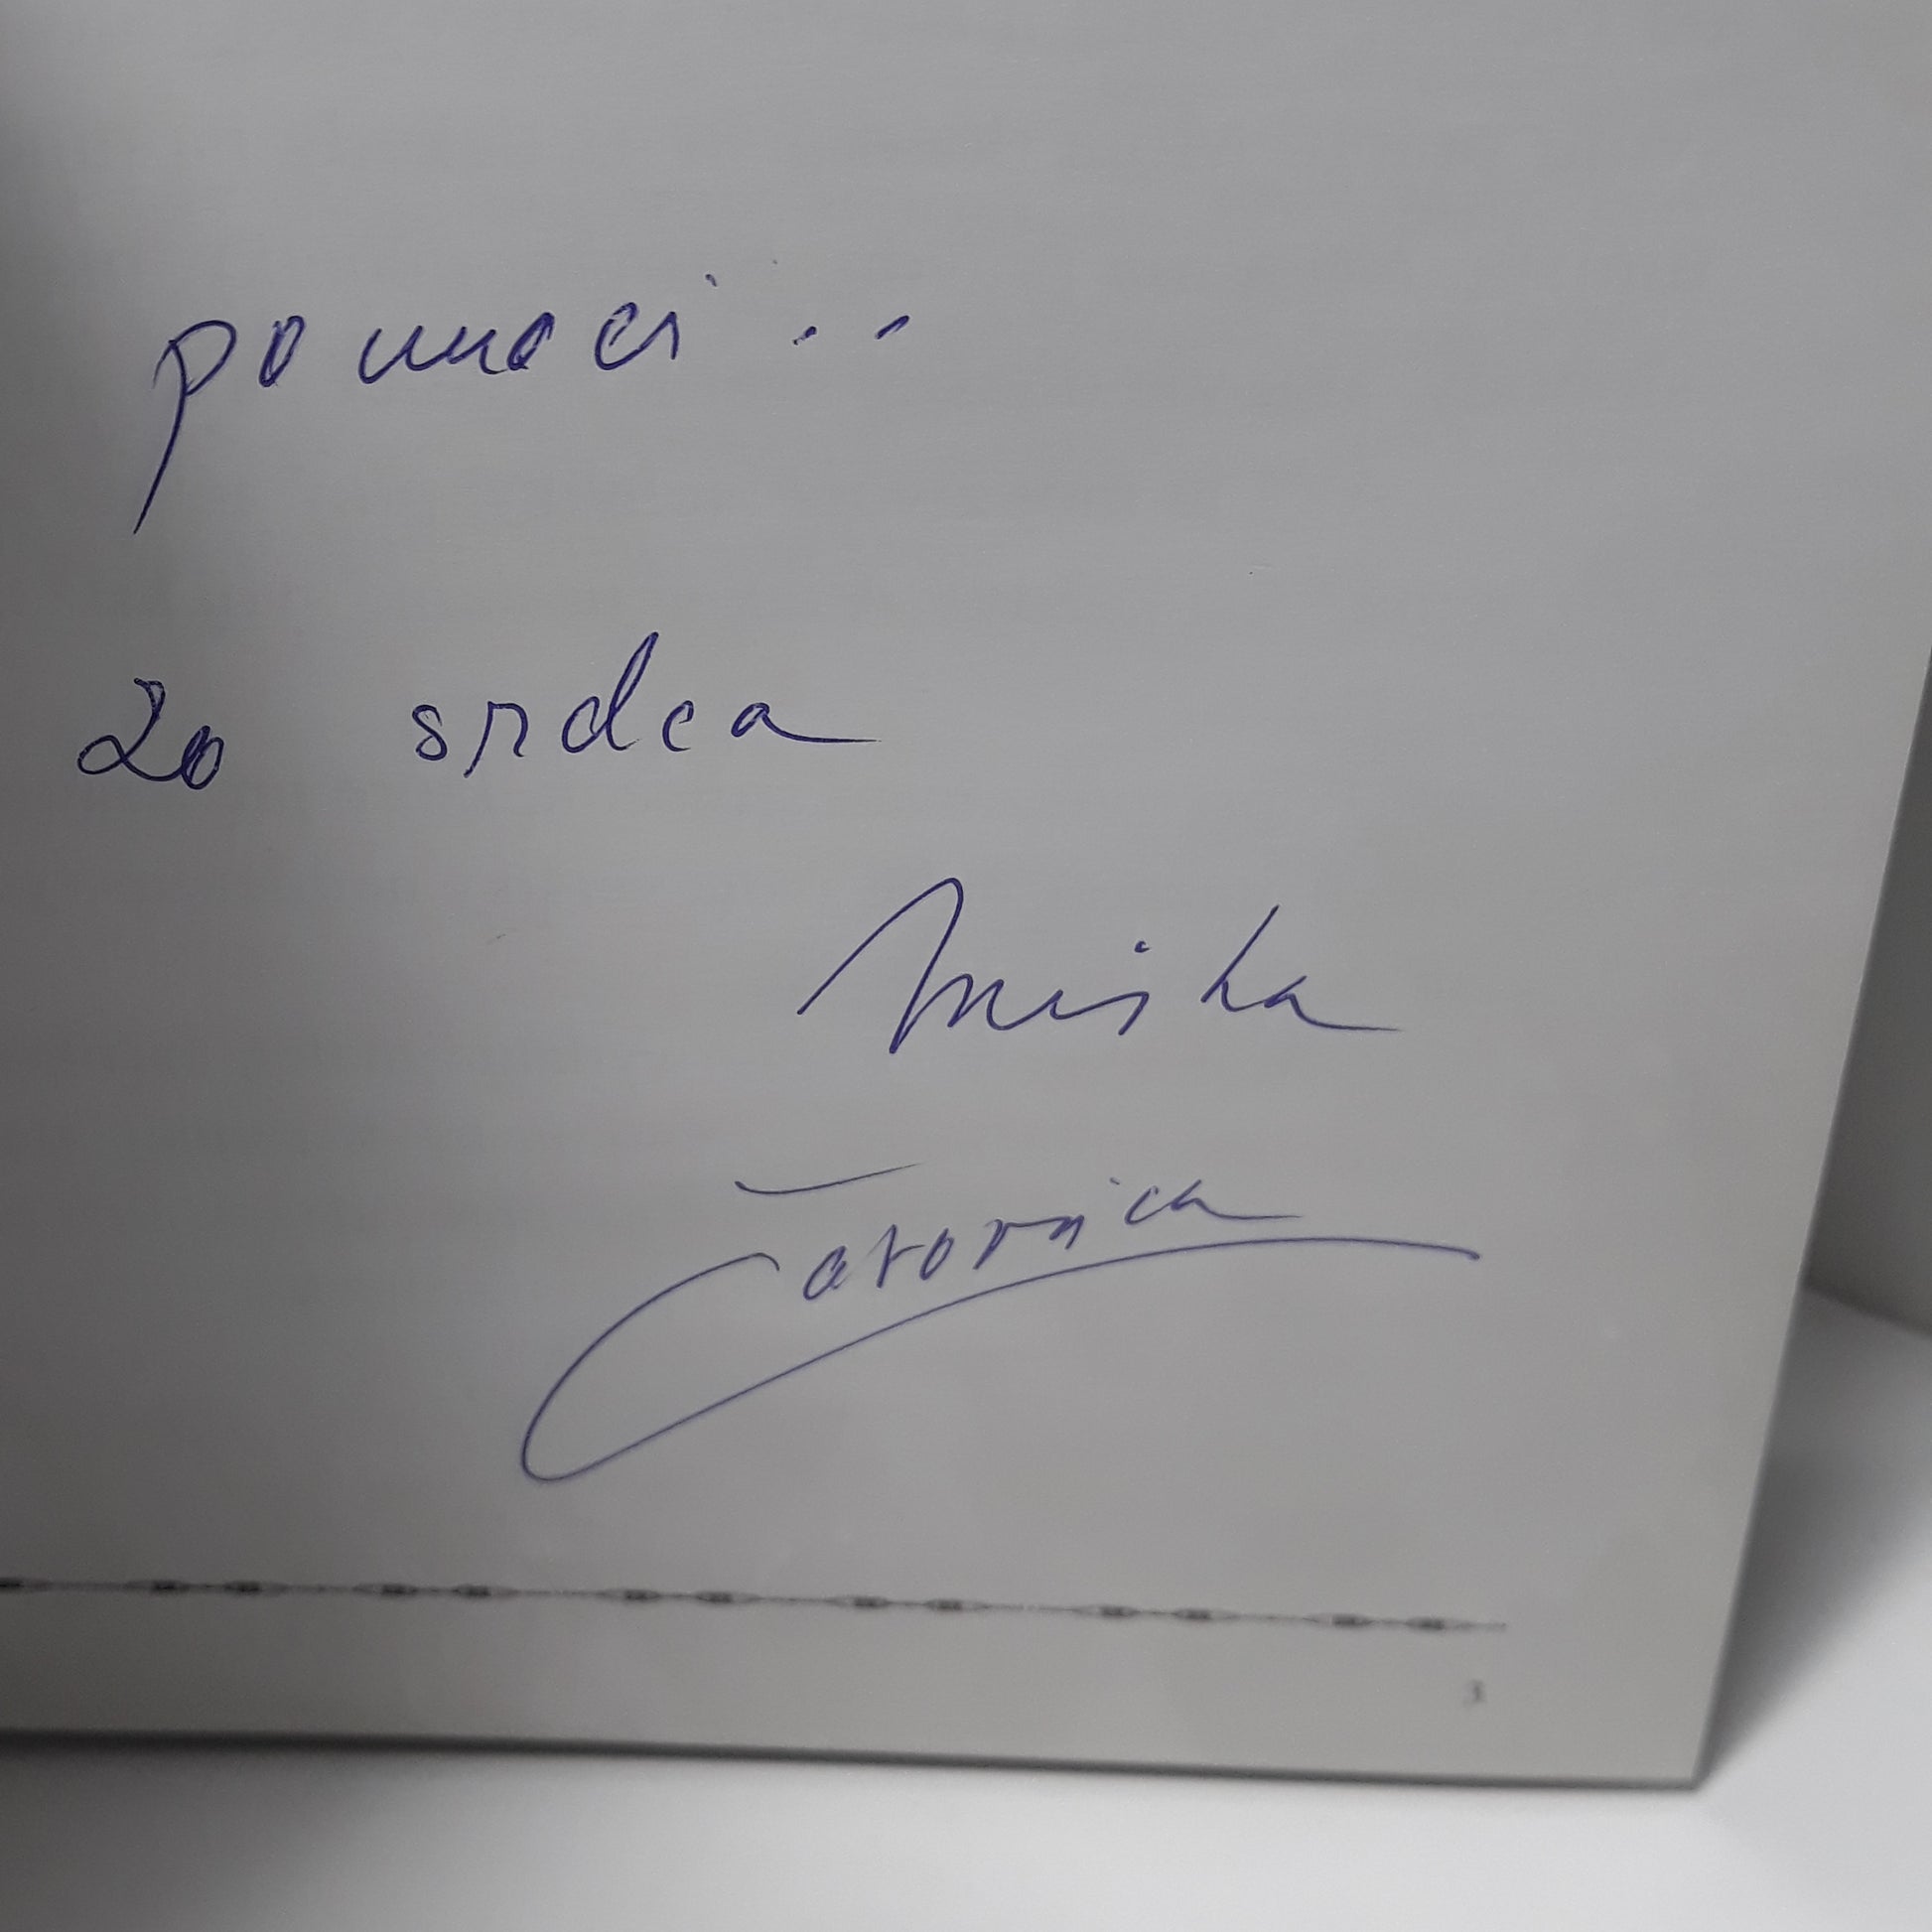 pomoci . .
zo srdca
Miška
Čatornica
3